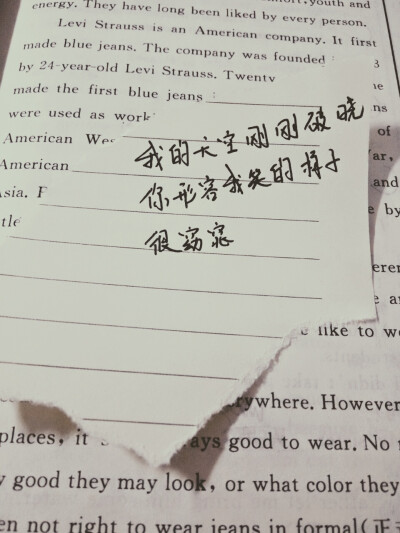 energy. They have long been liked by every person.
Levi Strauss is an American company. It first
made blue jeans. The company was founded
by 24-year-old Levi Strauss. Twenty
made the first blue jeans
ns
were used as work
of
American
我的天空刚刚破晓
American
你形容我笑的样子
and
Asia.
by
很窈窕
like to we
everywhere. However
places, it
ays good to wear. No
good they may look, or what color they
not right to wear jeans in formal(正